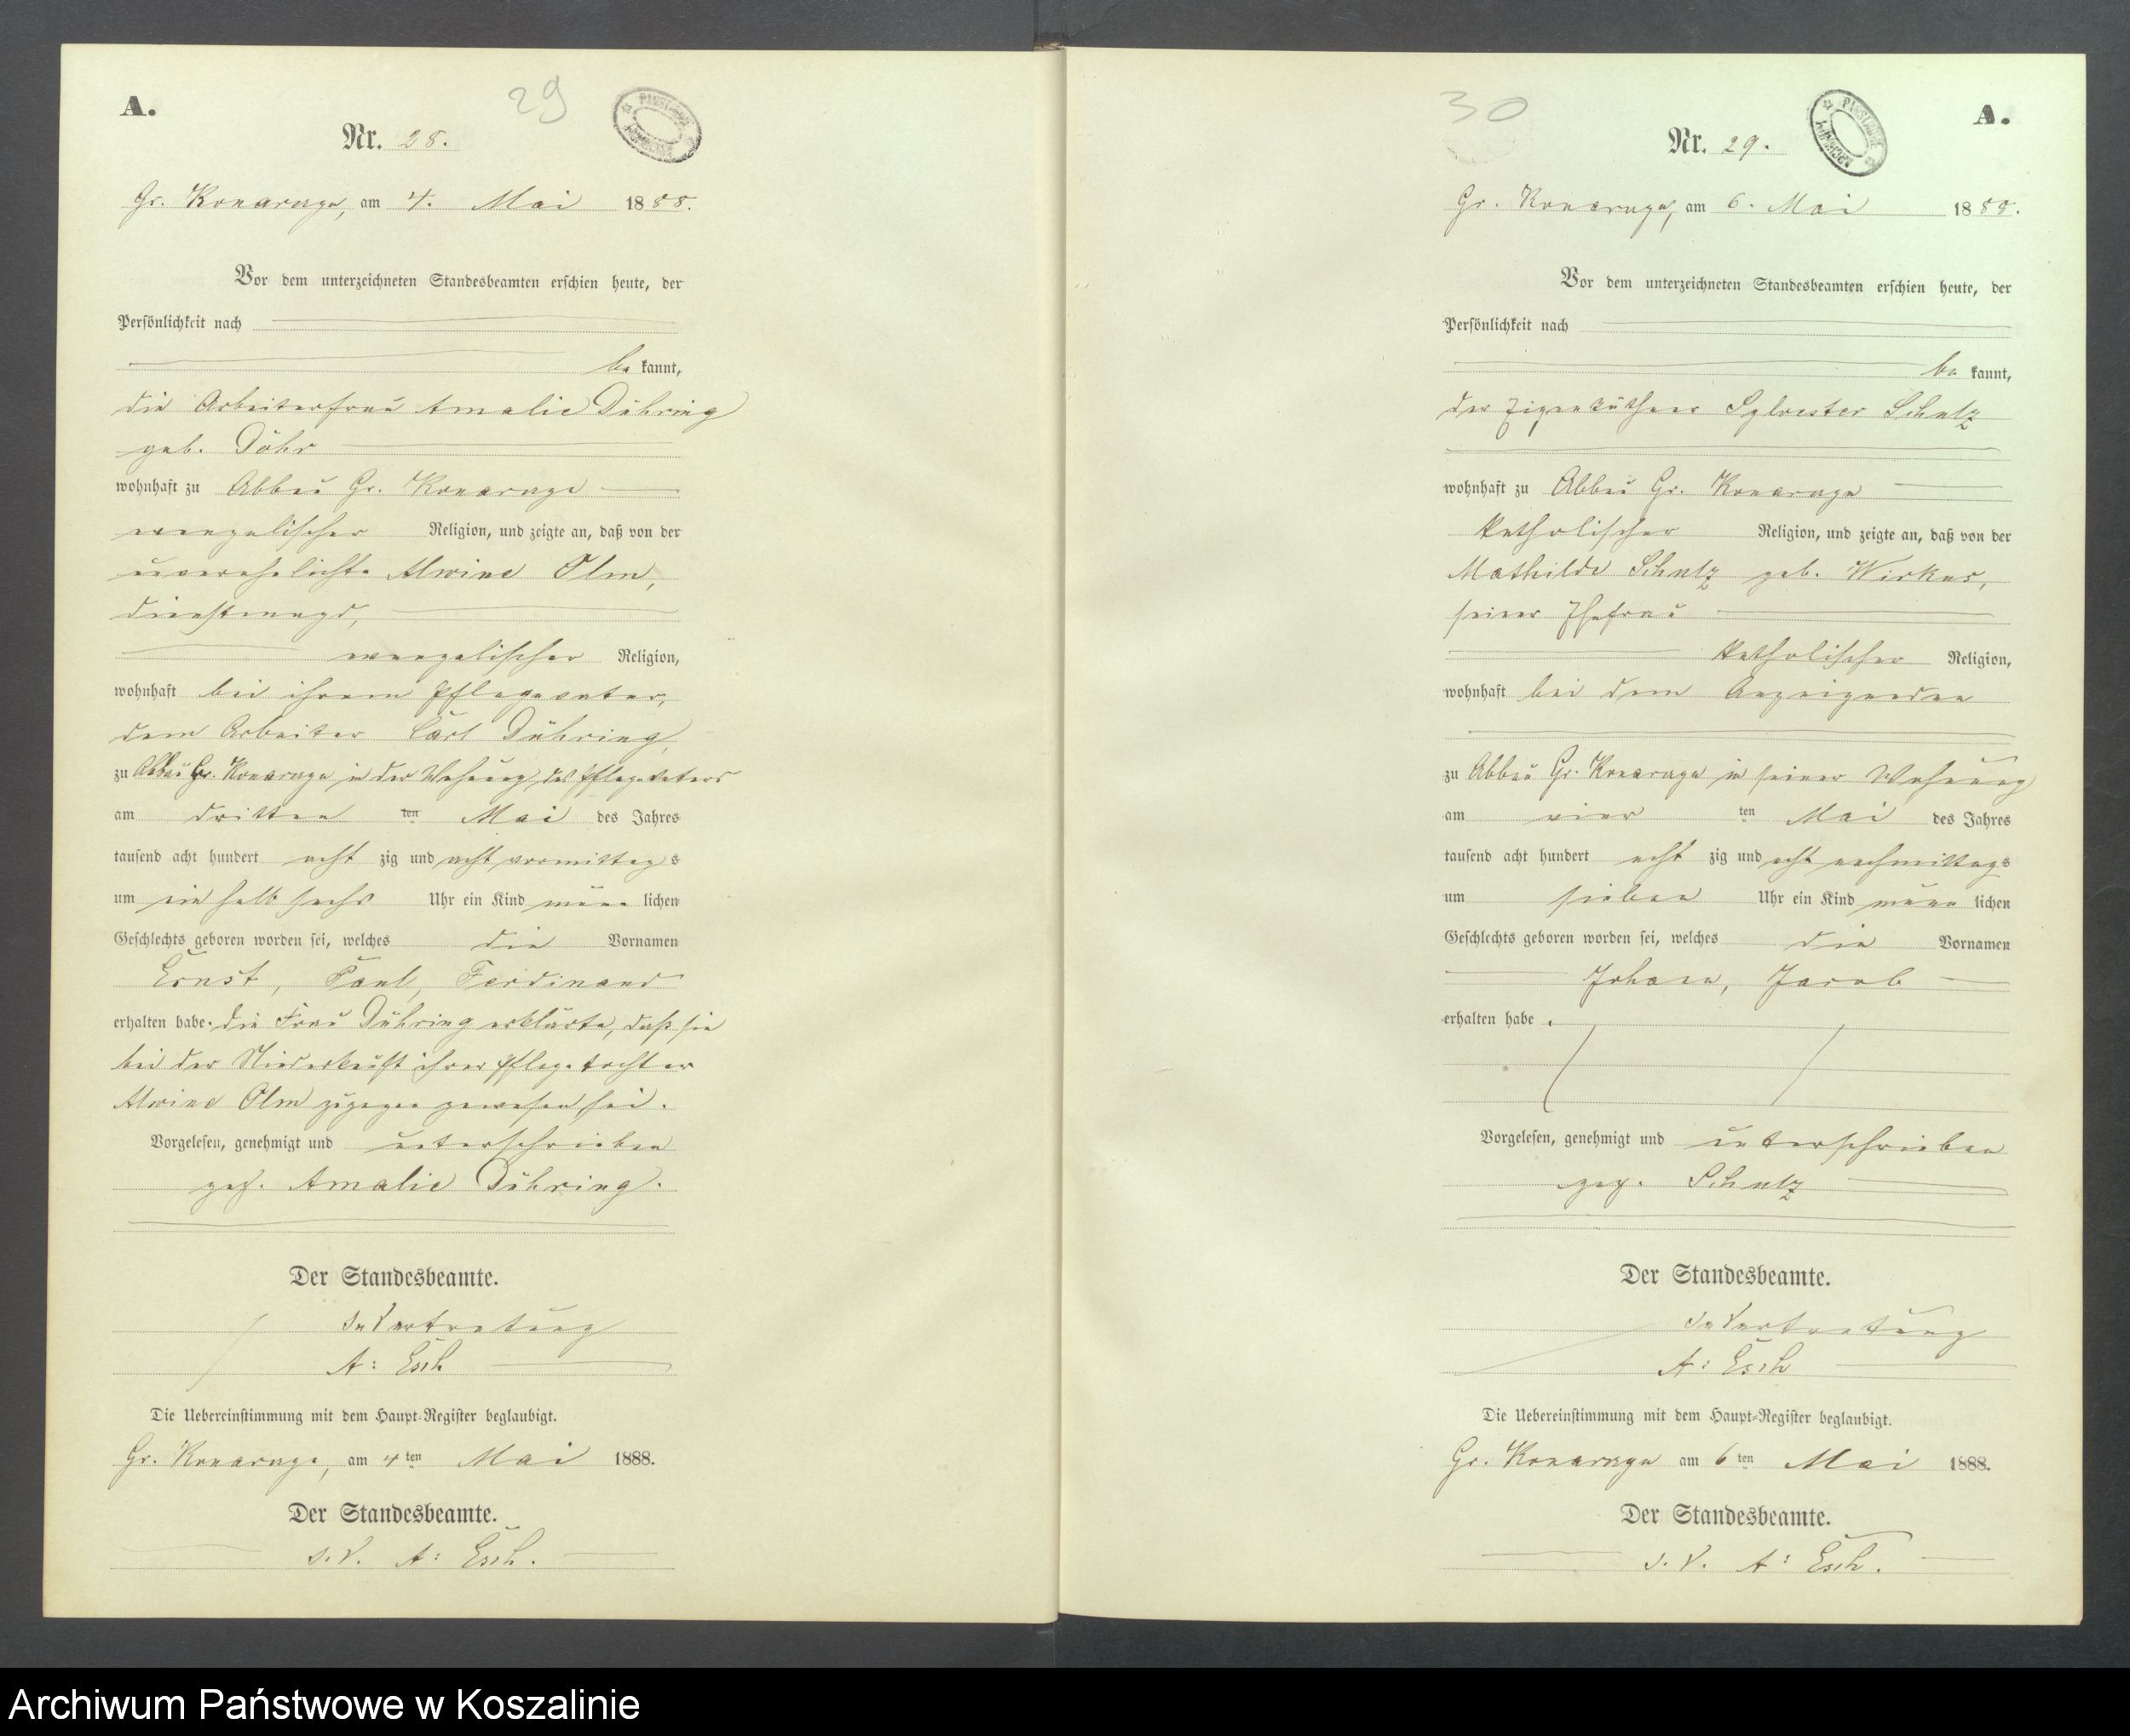 A.
29
Nr. 28.
Gr. Konarzyn, am 4. Mai 1888.
Vor dem unterzeichneten Standesbeamten erschien heute, der
Persönlichkeit nach
be kannt,
die Arbeiterfrau Amalie Dühring
geb. Döhr
wohnhaft zu Abbau Gr. Konarzyn
evangelischer Religion, und zeigte an, daß von der
unverehelichte Alwine Olm,
Dienstmagd,
evangelischer Religion,
wohnhaft bei ihrem Pflegevater,
dem Arbeiter Carl Dühring,
zu Abbau Gr. Konarzyn in der Wohnung des Pflegevaters
am dritten ten Mai des Jahres
tausend acht hundert acht zig und acht vormittag s
um ein halb sechs Uhr ein Kind männ lichen
Geschlechts geboren worden sei, welches die Vornamen
Ernst, Paul, Ferdinand
erhalten habe. Die Frau Dühring erklärte, daß sie
bei der Niederkunft ihrer Pflegetochter
Alwine Olm zugegen gewesen sei.
Vorgelesen, genehmigt und unterschrieben
gez. Amalie Dühring.
Der Standesbeamte.
In Vertretung
A: Esch
Die Uebereinstimmung mit dem Haupt-Register beglaubigt.
Gr. Konarzyn, am 4 ten Mai 1888.
Der Standesbeamte.
I. V. A: Esch.
30
A.
Nr. 29.
Gr. Konarzyn, am 6. Mai 1888.
Vor dem unterzeichneten Standesbeamten erschien heute, der
Persönlichkeit nach
be kannt,
der Eigenkäthner Sylvester Schulz
wohnhaft zu Abbau Gr. Konarzyn
katholischer Religion, und zeigte an, daß von der
Mathilde Schulz geb. Wirkus,
seiner Ehefrau
katholischer Religion,
wohnhaft bei dem Anzeigenden
zu Abbau Gr. Konarzyn in seiner Wohnung
am vier ten Mai des Jahres
tausend acht hundert acht zig und acht nachmittags
um sieben Uhr ein Kind männ lichen
Geschlechts geboren worden sei, welches die Vornamen
Johann, Jacob
erhalten habe.
Vorgelesen, genehmigt und unterschrieben
gez. Schulz
Der Standesbeamte.
In Vertretung
A: Esch
Die Uebereinstimmung mit dem Haupt-Register beglaubigt.
Gr. Konarzyn am 6 ten Mai 1888.
Der Standesbeamte.
I. V. A: Esch.
Archiwum Państwowe w Koszalinie